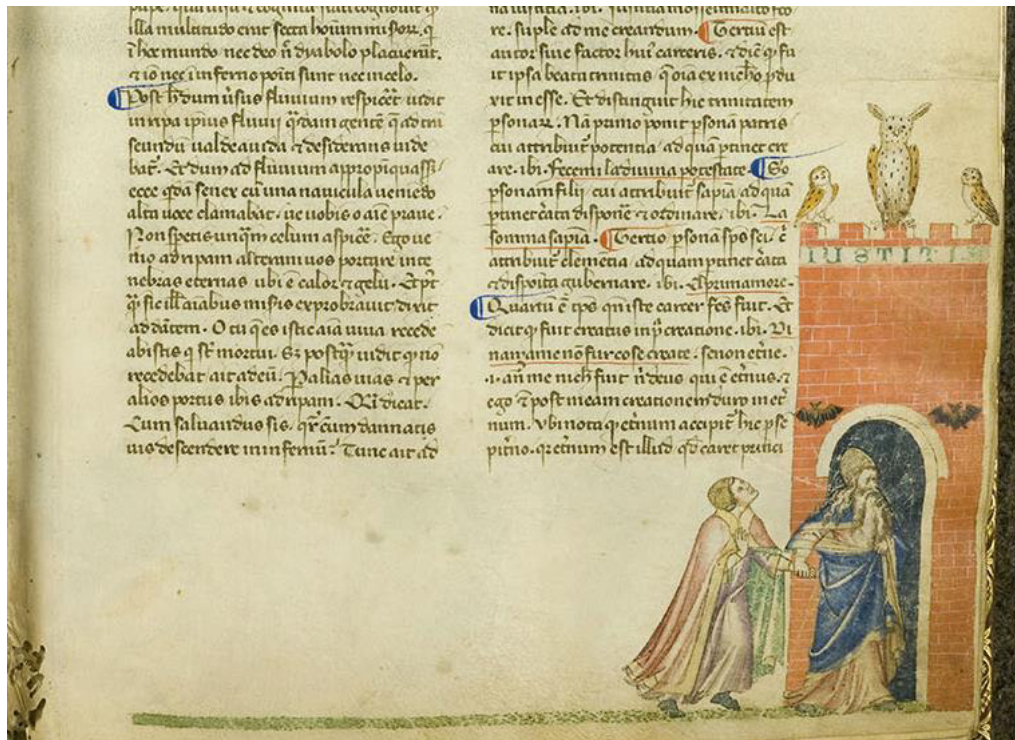 illa multitudo erit secta hoium misor̄. q̄
ī hoc mundo nec deo n̄ dyabolo placuerūt.
⁊ iō nec ī inferno poiti sunt nec in celo.
Post h̄ dum ūsus fluuium respiceēt uidit
in ripa ipius fluuii q̄ndam gentē q̄ ad trā
seundū ualde auida ⁊ desiderans uide
bat᷑. Et dum ad fluuium appropiquassēt
ecce q̄dā senex cū una nauicula ueniēdo
alta uoce clamabat. ue uobis o aīe praue.
Non spetis unq̄m celum aspicē. Ego ue
nio ad ripam alteram uos portare in te
nebras eternas ubi ē calor ⁊ gelu. Et pt̄
q̄ sic ill̄ aīabus misis exprobrauit dixit
ad dātem. O tu q̄ es istic aīa uiua recede
ab istis q̄ st̄ mortui. Sz postq̄ȝ uidit q̄ nō
recedebat ait ad eū. P alias uias ⁊ per
alios portus ibis ad ripam. Q̄i dicat.
Cum saluandus sis. qr̄ cum dannatis
uis descendere in infernū? Tunc ait ad
re. suple ad me creandum. Tertiū est
auctor siue factor hui᷒ carceris. ⁊ dīc q̄ fu
it ipsa beata trinitas q̄ oīa ex nich̄o p̄du
xit in esse. Et distinguit hic trinitatem
psonaꝝ. Nā primo ponit psonā patris
cui attribuit᷑ potentia ad quā ptinet cre
are. ibi. fecemi la diuina potestate. So
psonam filii cui attribuit᷑ sapīa ad quā
ptinet cāta disponē ⁊ ordinare. ibi. La
somma sapīa. Tertio psona sps sci. c̄
attribuit᷑ clemētia ad quam ptinet cāta
⁊ disposita gubernare. ibi. El primamore.
Quartū ē tps qn̄ iste carcer fcs fuit. Et
dicit q̄ fuit creatus in p̄ creatione. ibi. Di
nançi a me nō fur cose create. se non etn̄e.
.i. an̄ me nich̄ fuit n̄ deus qui ē etn̄us. ⁊
ego ē post meam creationem duro in et̄
num. Vbi nota q̄ etn̄um accipit᷑ hic p se
pit̄no. qr etn̄um est illud qd̄ caret princi
IUSTITI